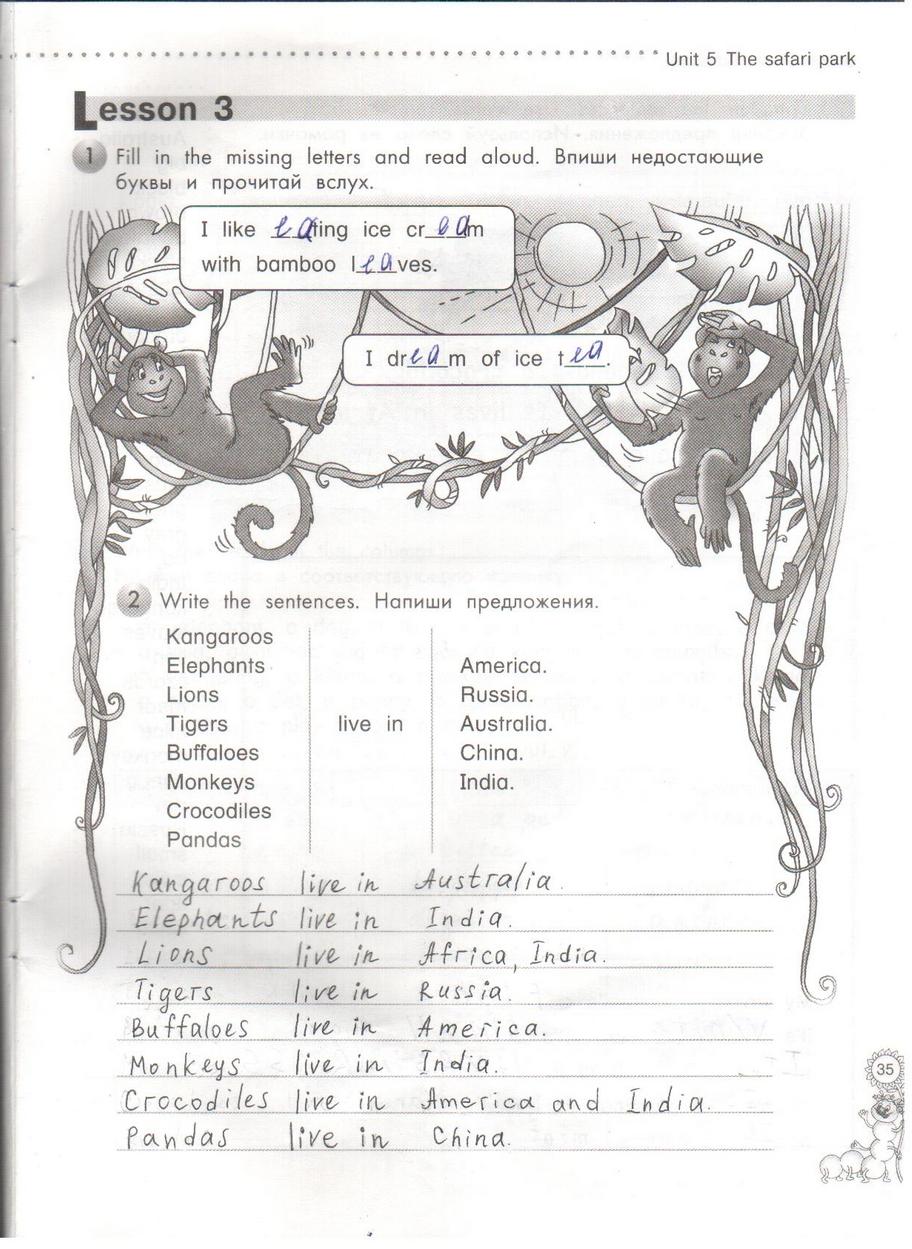 Unit 5 The safari park
Lesson 3
1 Fill in the missing letters and read aloud. Впиши недостающие
буквы и прочитай вслух.
I like eating ice cream
with bamboo leaves.
I dream of ice tea.
2 Write the sentences. Напиши предложения.
Kangaroos
Elephants America.
Lions Russia.
Tigers live in Australia.
Buffaloes China.
Monkeys India.
Crocodiles
Pandas
Kangaroos live in Australia.
Elephants live in India.
Lions live in Africa, India.
Tigers live in Russia.
Buffaloes live in America.
Monkeys live in India.
Crocodiles live in America and India.
Pandas live in China.
35